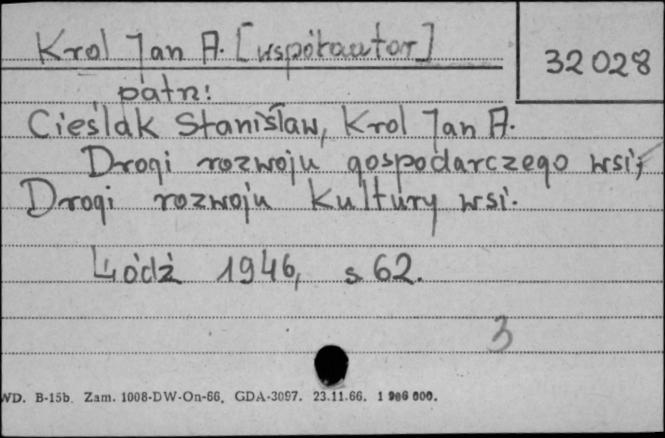 Krol Jan A. [współautor]
32028
patrz:
Cieślak Stanisław, Krol Jan A.
Drogi rozwoju gospodarczego wsi;
Drogi rozwoju kultury wsi.
Łódź 1946, s 62.
3
WD. B-15b. Zam. 1008-DW-On-66. GDA-3097. 23.11.66. 1 986 000.